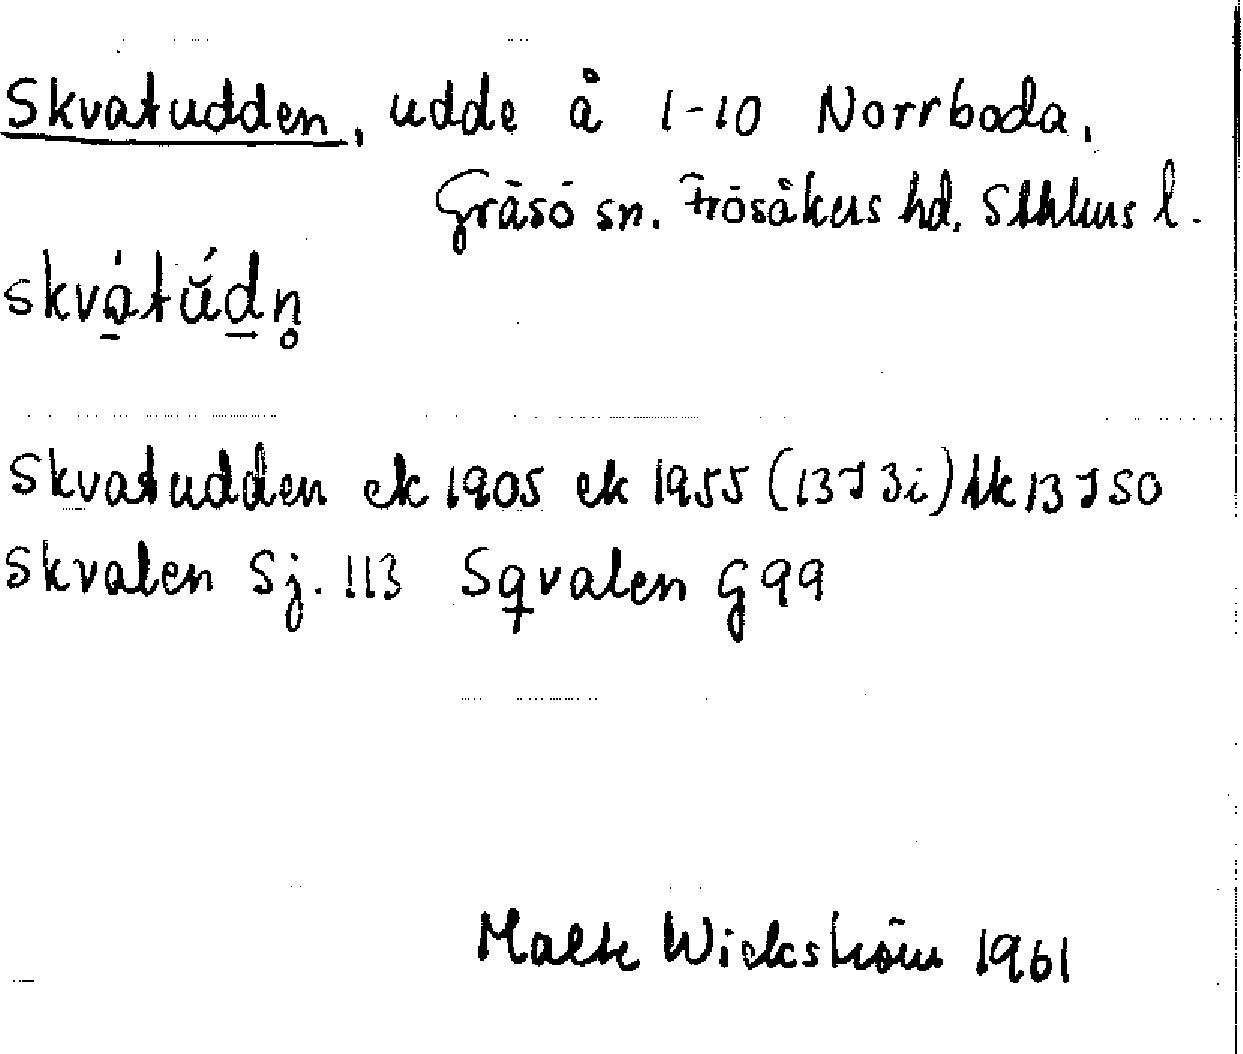 Skvatudden, udde å 1-10 Norrboda,
Gräsö sn. Frösåkers hd. Sthlms l.
skvátŭ́dn̥
Skvatudden ek 1905 ek 1955 (13J 3i) tk 13 J SO
Skvaten Sj. 113 Sqvaten G 99
Malte Wickström 1961